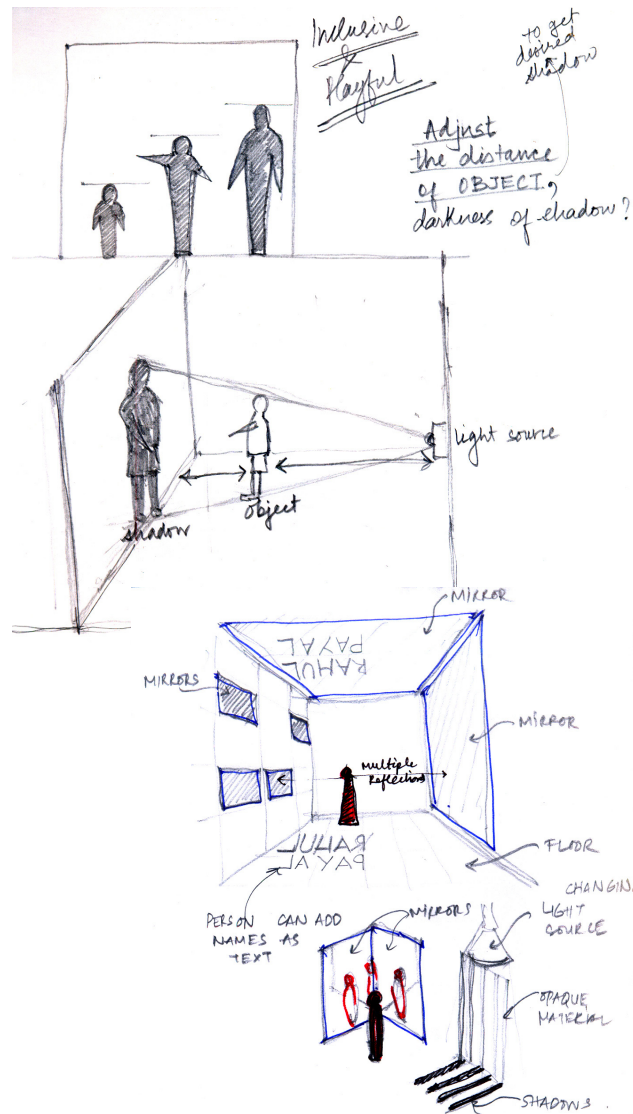 Inclusive
&
Playful
to get
desired
shadow
Adjust
the distance
of OBJECT,
darkness of shadow?
light source
object
shadow
MIRROR
PAYAL
RAHUL
MIRRORS
MIRROR
Multiple
Reflections
RAHUL
PAYAL
FLOOR
PERSON CAN ADD
NAMES AS
TEXT
MIRRORS
CHANGIN
LIGHT
SOURCE
OPAQUE
MATERIAL
SHADOWS.